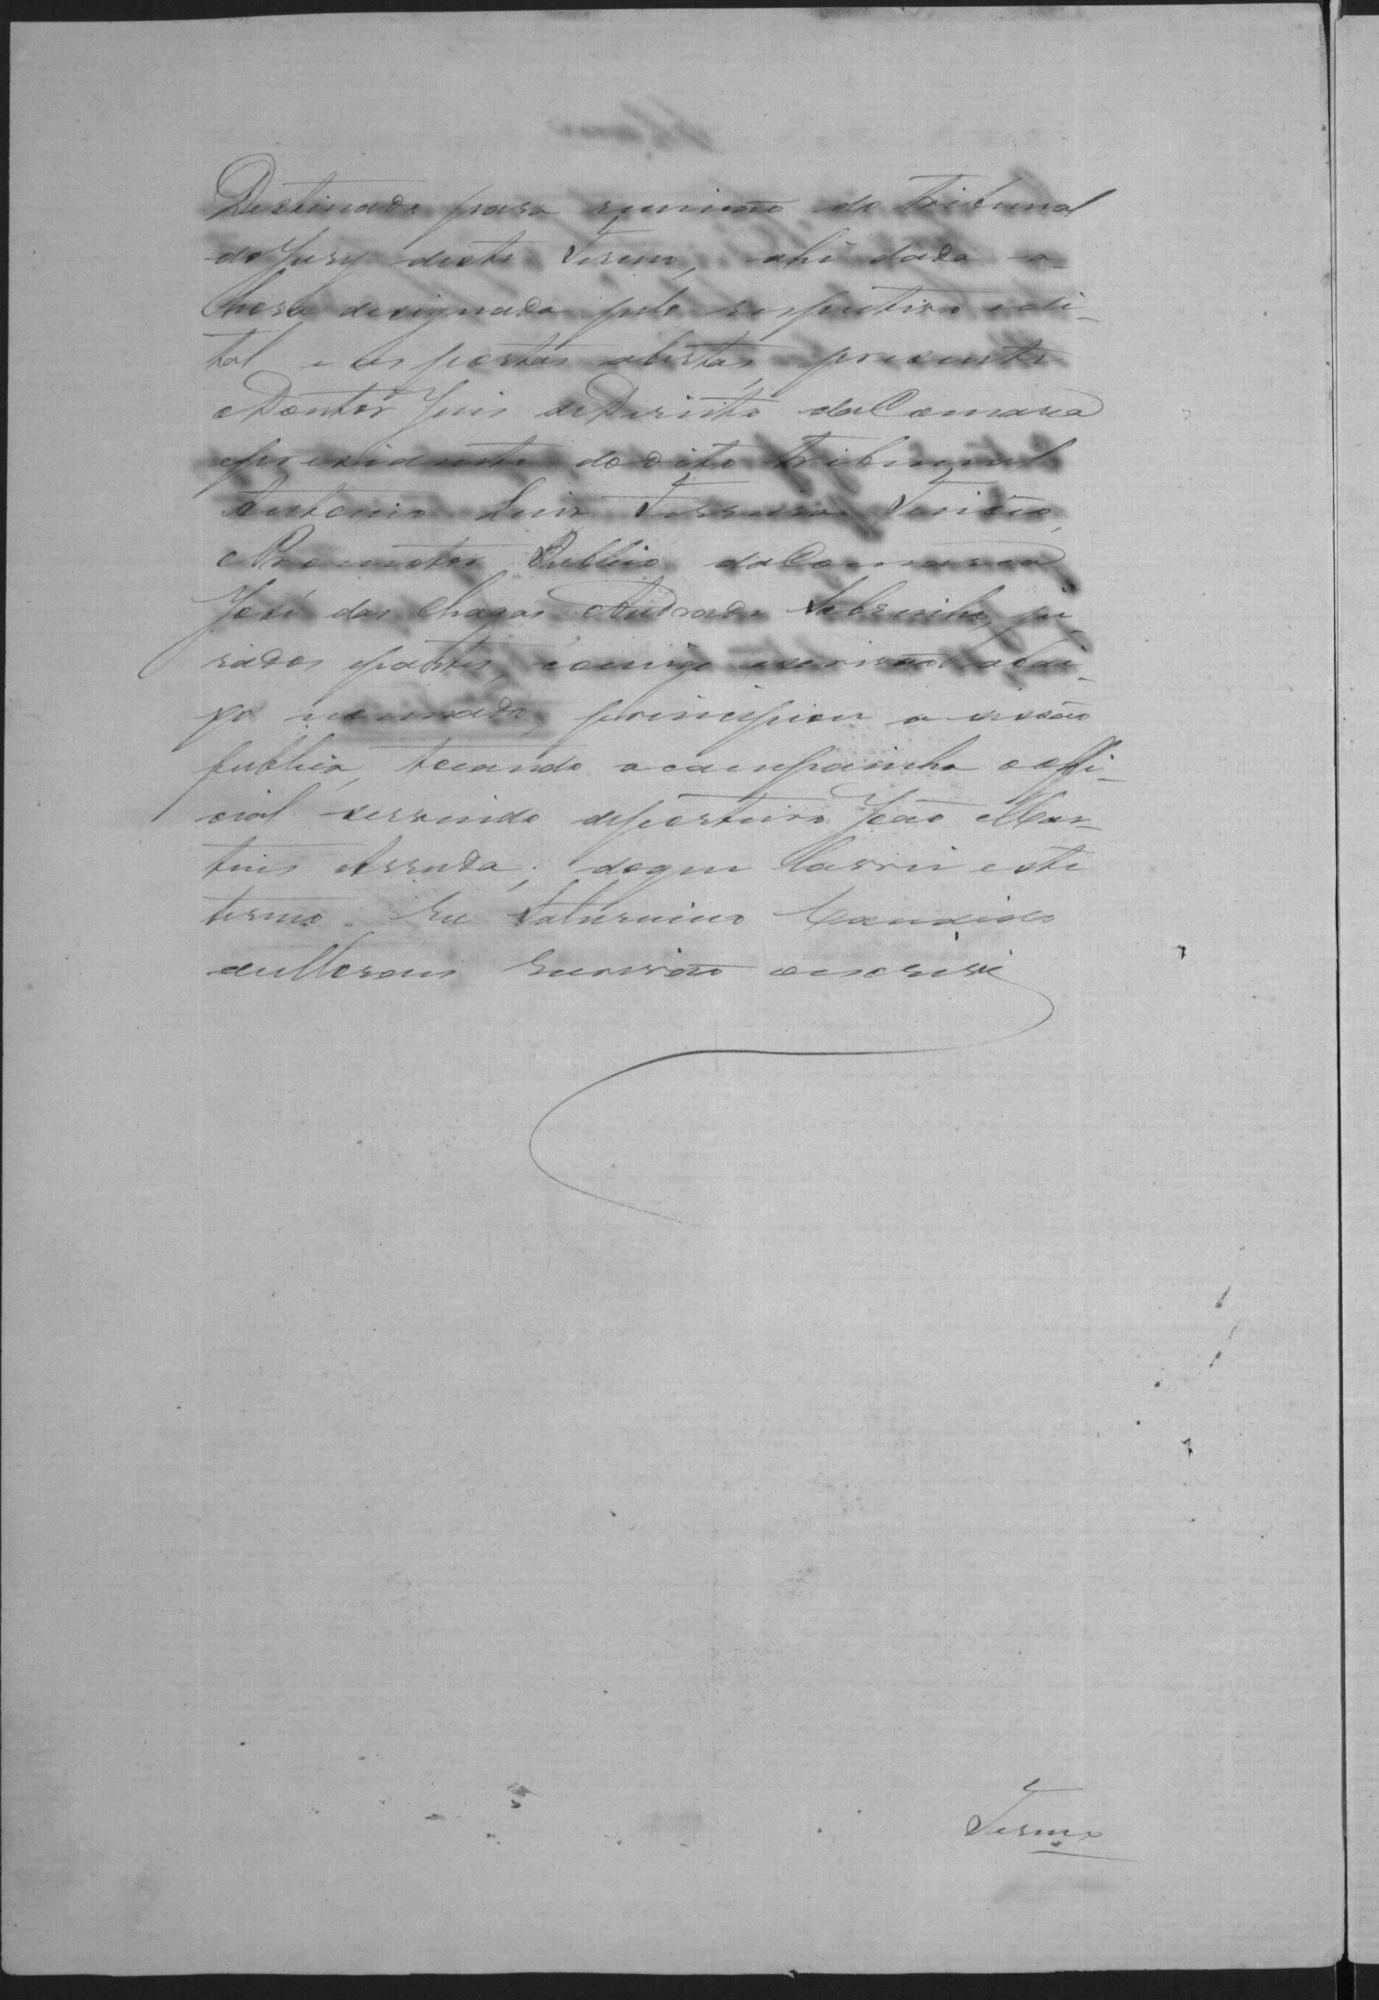 Destinada para reunião do Tribunal
do Jury deste Termo, ahi dada a
hora designada pelo respectivo edi-
tal e as portas abertas, presente
o Doutor Juis de Direito da Comarca
presidente do dito tribunal
Antonio Luis Ferreira Tinôco,
o Promotor Publico da Comarca
José das Chagas Andrade Sobrinho, ju
rados e partes, comigo escrivão abai-
xo nomeado, principiou a sessão
publica, tocando a campainha o offi-
cial servindo de porteiro João Mar-
tins Arruda; do que lavrei este
termo. Eu Saturnino Candido
de Moraes Escrivão o escrevi
Termo